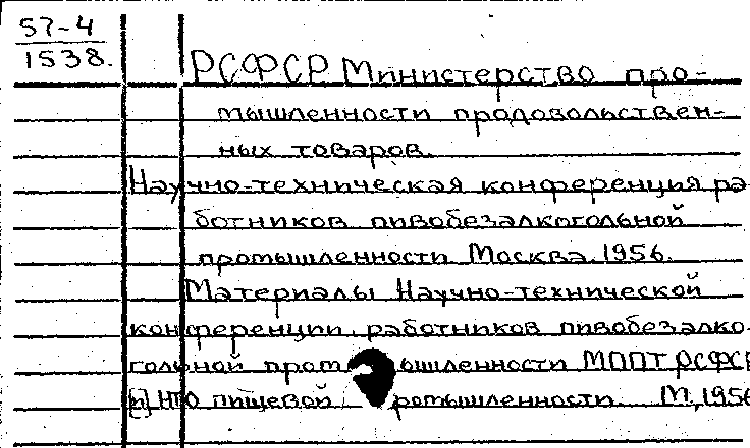 57-4
1538.
РСФСР Министерство про-
мышленности продовольствен-
ных товаров.
Научно-техническая конференция ра-
ботников пивобезалкогольной
промышленности Москва. 1956.
Материалы Научно-технической
конференции работников пивобезалко-
гольной промышленности МППТ РСФСР
[и] НТО пищевой промышленности. М, 1956